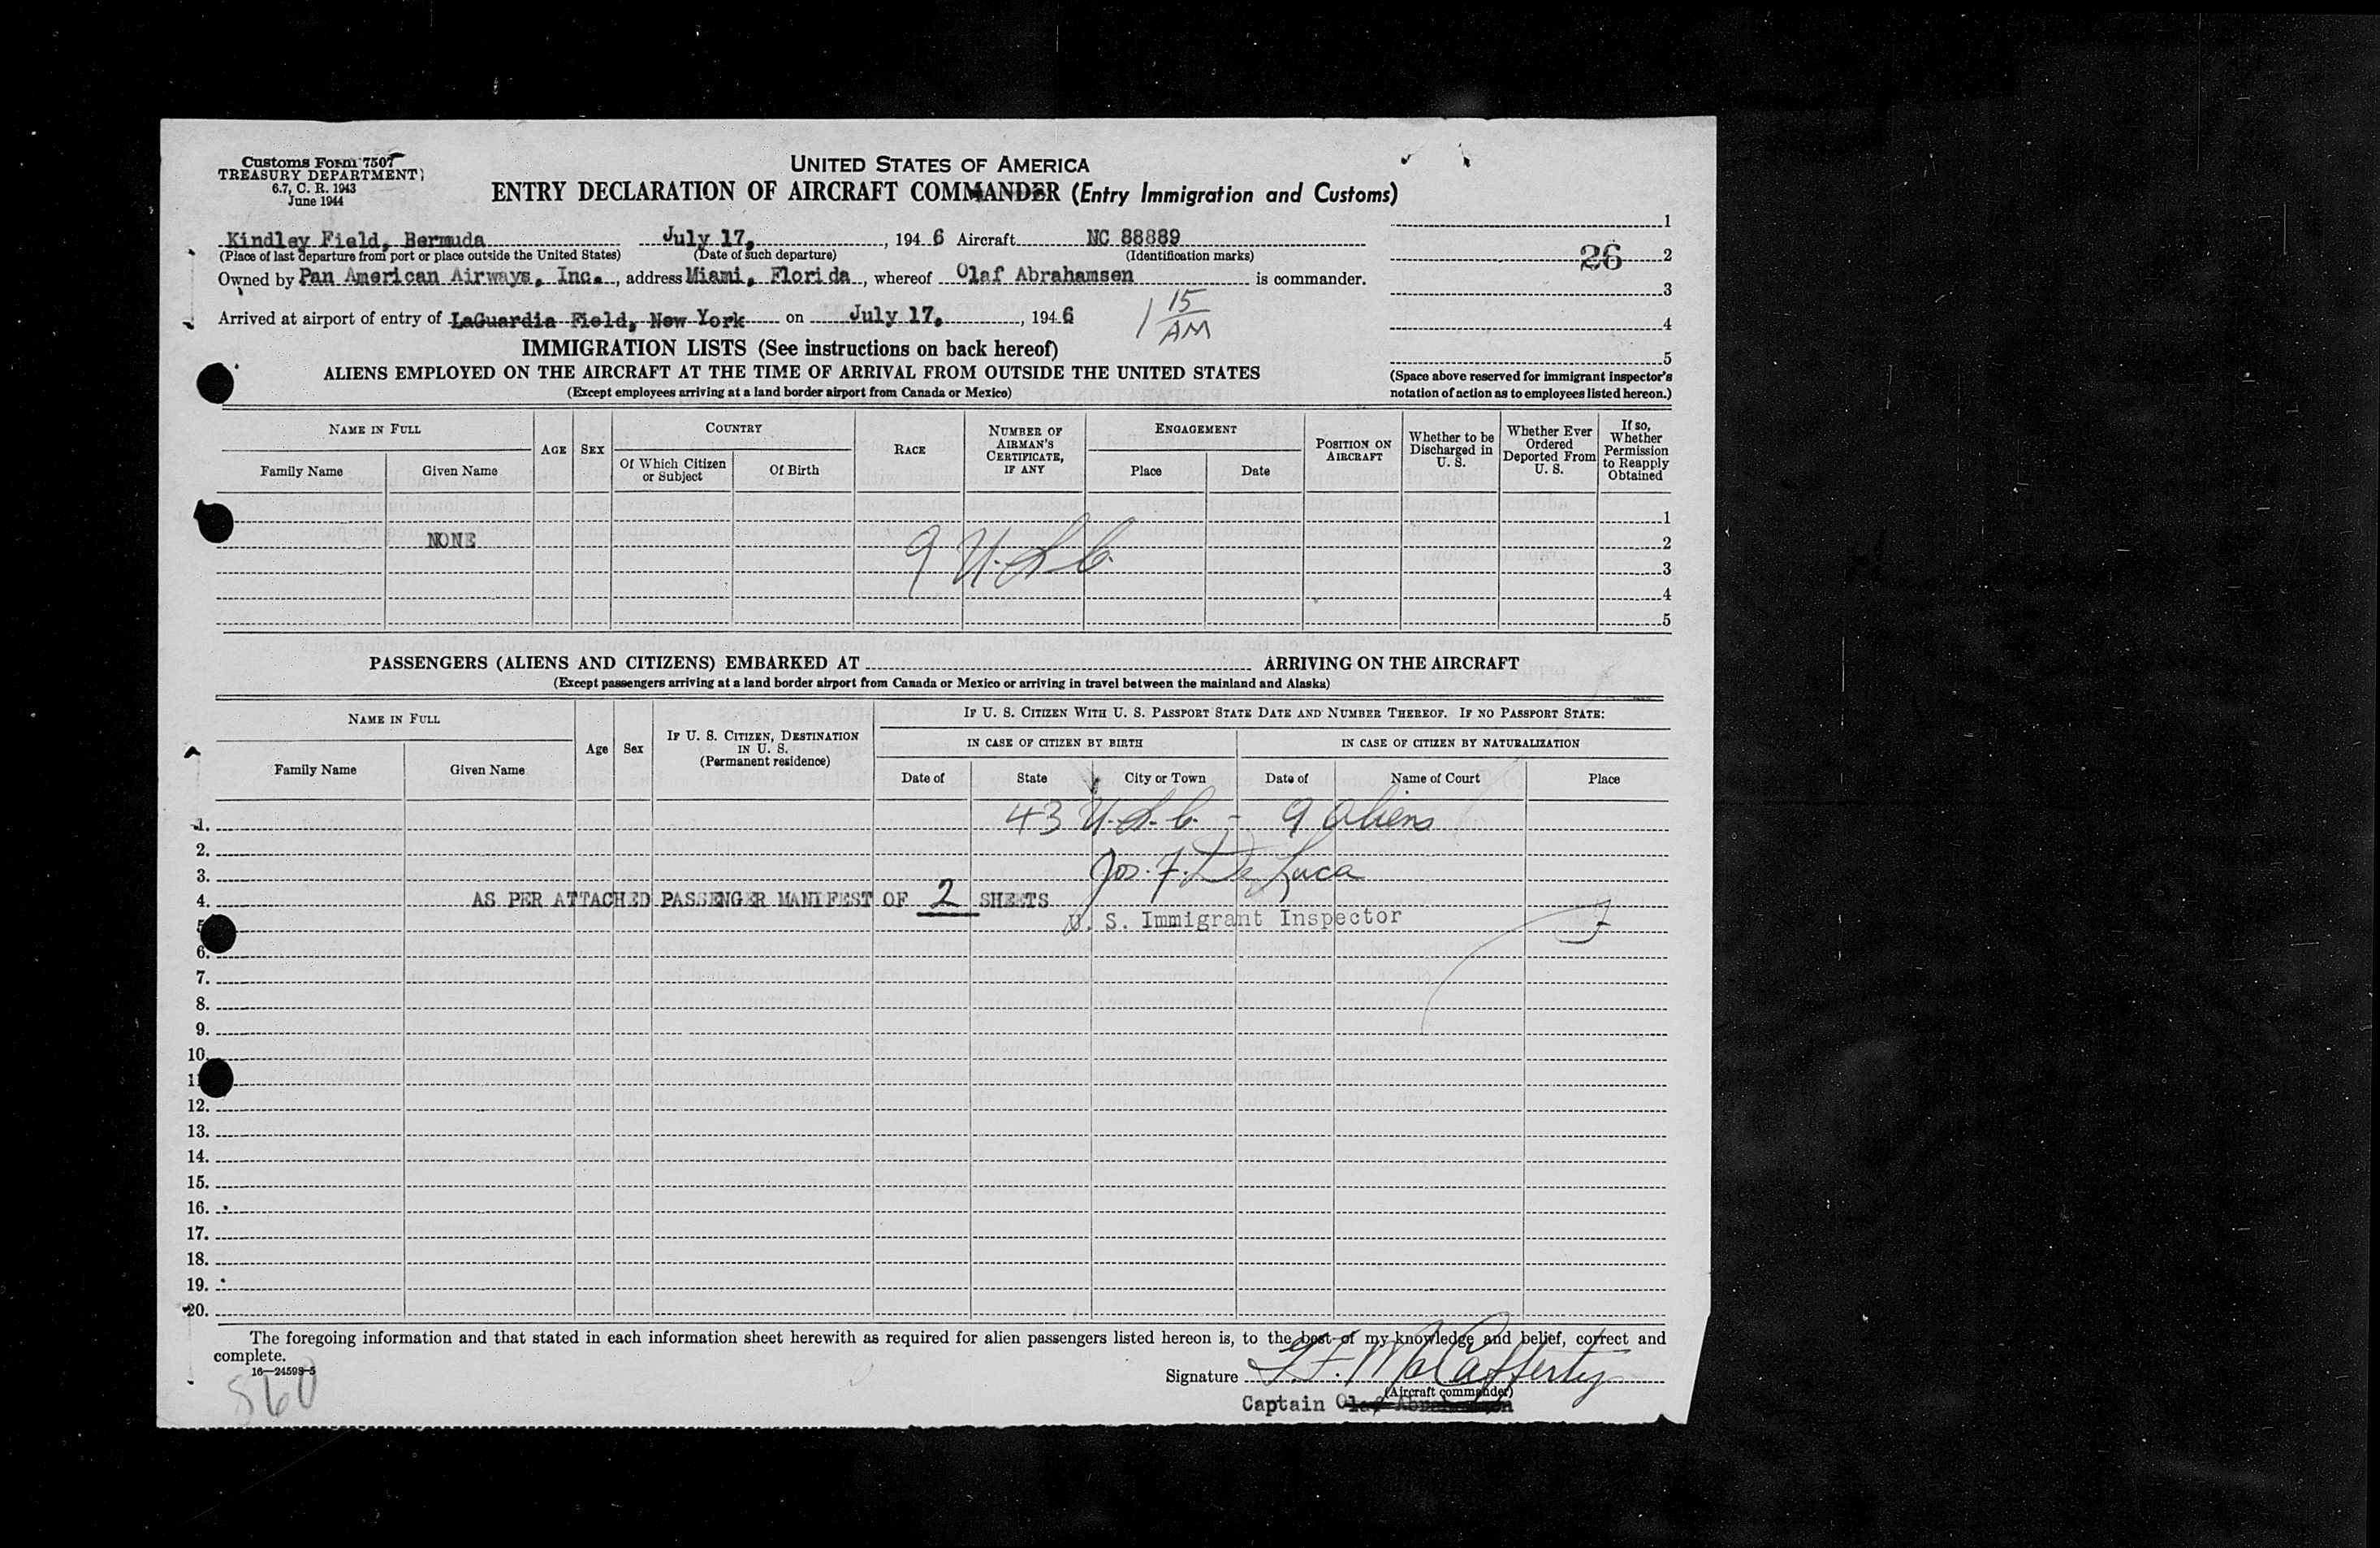 Customs Form 7507
TREASURY DEPARTMENT
6.7, C. R. 1943
June 1944
UNITED STATES OF AMERICA
ENTRY DECLARATION OF AIRCRAFT COMMANDER (Entry Immigration and Customs)
Kindley Field, Bermuda July 17, 1946 Aircraft NC 88889
(Place of last departure from port or place outside the United States) (Date of such departure) (Identification marks)
Owned by Pan American Airways, Inc., address Miami, Florida, whereof Olaf Abrahamsen is commander.
Arrived at airport of entry of LaGuardia Field, New York on July 17, 1946
1 15 AM
1
26 2
3
4
5
(Space above reserved for immigrant inspector's
notation of action as to employees listed hereon.)
IMMIGRATION LISTS (See instructions on back hereof)
ALIENS EMPLOYED ON THE AIRCRAFT AT THE TIME OF ARRIVAL FROM OUTSIDE THE UNITED STATES
(Except employees arriving at a land border airport from Canada or Mexico)
NAME IN FULL
Family Name Given Name
AGE
SEX
COUNTRY
Of Which Citizen or Subject Of Birth
RACE
NUMBER OF AIRMAN'S CERTIFICATE, IF ANY
ENGAGEMENT
Place Date
POSITION ON AIRCRAFT
Whether to be Discharged in U. S.
Whether Ever Ordered Deported From U. S.
If so, Whether Permission to Reapply Obtained
1
NONE 2
9 U.S.C.
3
4
5
PASSENGERS (ALIENS AND CITIZENS) EMBARKED AT ARRIVING ON THE AIRCRAFT
(Except passengers arriving at a land border airport from Canada or Mexico or arriving in travel between the mainland and Alaska)
NAME IN FULL
Family Name Given Name
Age
Sex
IF U. S. CITIZEN, DESTINATION IN U. S. (Permanent residence)
IF U. S. CITIZEN WITH U. S. PASSPORT STATE DATE AND NUMBER THEREOF. IF NO PASSPORT STATE:
IN CASE OF CITIZEN BY BIRTH IN CASE OF CITIZEN BY NATURALIZATION
Date of State City or Town Date of Name of Court Place
1. 43 U.S.C. - 9 Aliens
2.
3. Jos. F. De Luca
4. AS PER ATTACHED PASSENGER MANIFEST OF 2 SHEETS
U. S. Immigrant Inspector
5
6.
7.
8.
9.
10.
11
12.
13.
14.
15.
16.
17.
18.
19.
20.
The foregoing information and that stated in each information sheet herewith as required for alien passengers listed hereon is, to the best of my knowledge and belief, correct and
complete.
16—24598-5
560
Signature McCafferty
(Aircraft commander)
Captain Olaf Abrahamsen